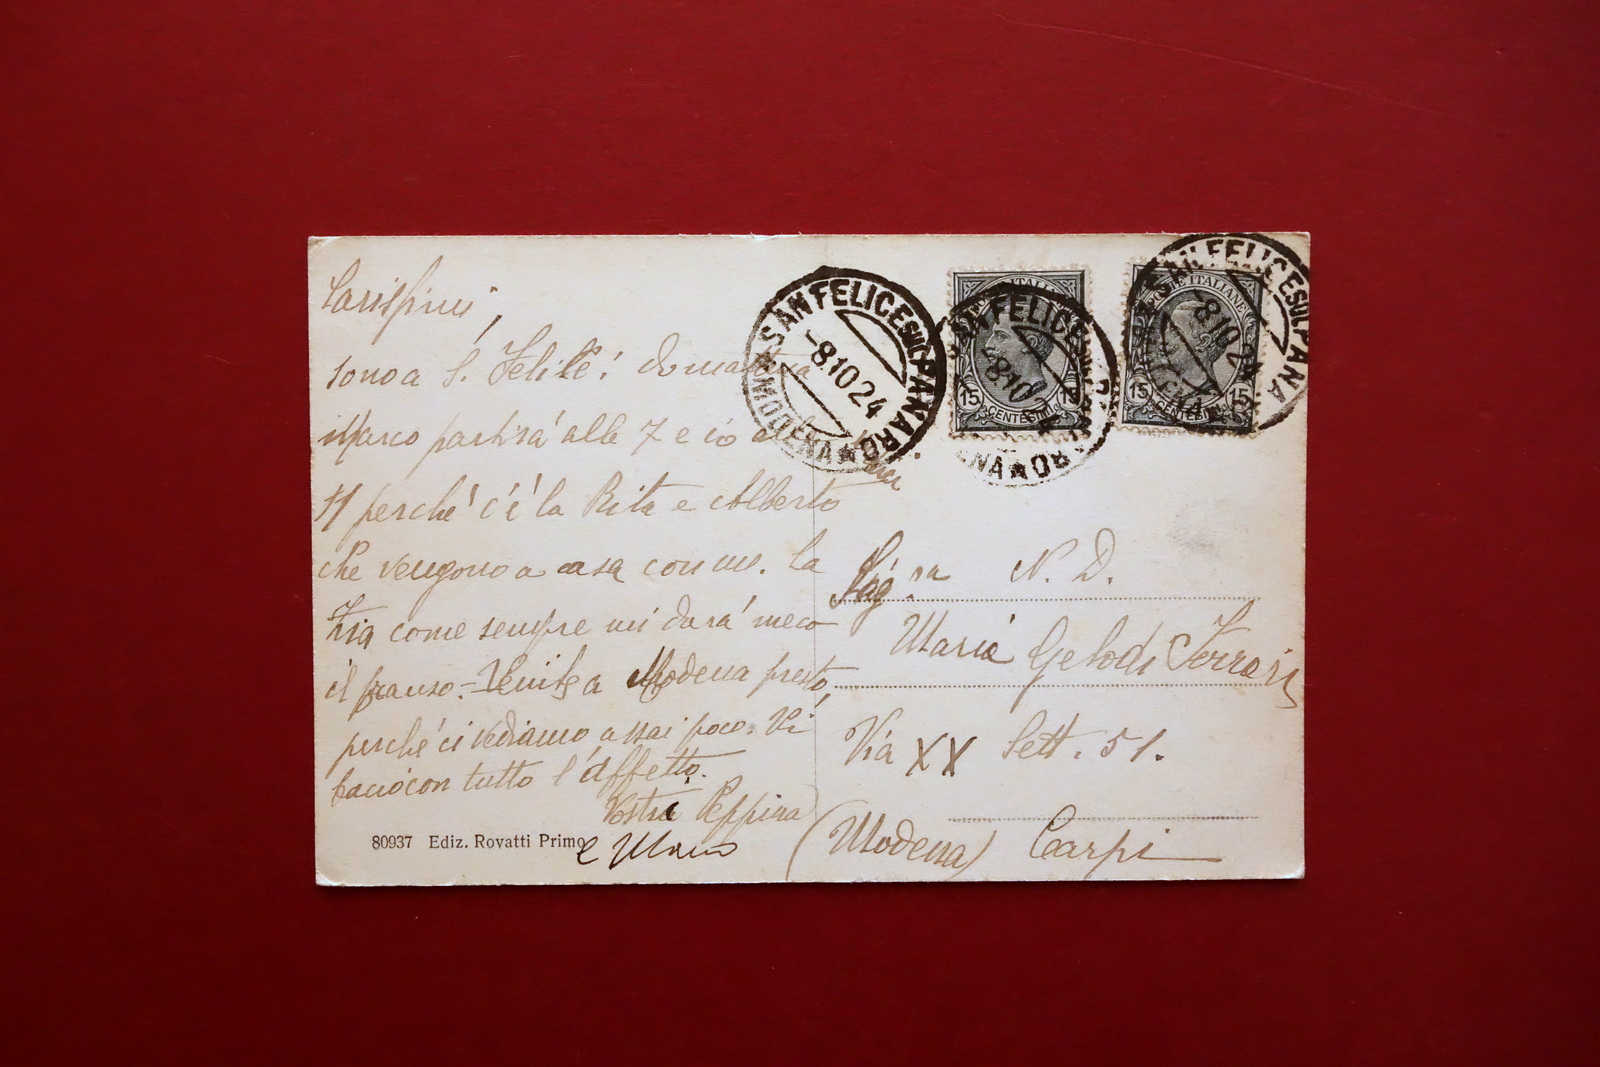 Carissimi,
sono a S. Felice: domattina
Marco partirà alle 7 e io alle
11 perchè c'è la Rita e Alberto
che vengono a casa con me. La
Zia come sempre mi darà meco
il pranzo. - Venite a Modena presto,
perchè ci vediamo assai poco. Vi
bacio con tutto l'affetto.
Vostra Peppina
e
80937 Ediz. Rovatti Primo
SAN FELICE SUL PANARO
-8.10.24
MODENA
POSTE ITALIANE
15 15
CENTESIMI
SAN FELICE SUL PANARO
-8.10.24
MODENA
POSTE ITALIANE
15 15
CENTESIMI
SAN FELICE SUL PANARO
-8.10.24
Sig.ra N. D.
Maria Gelodi Ferrari
Via XX Sett. 51.
(Modena) Carpi